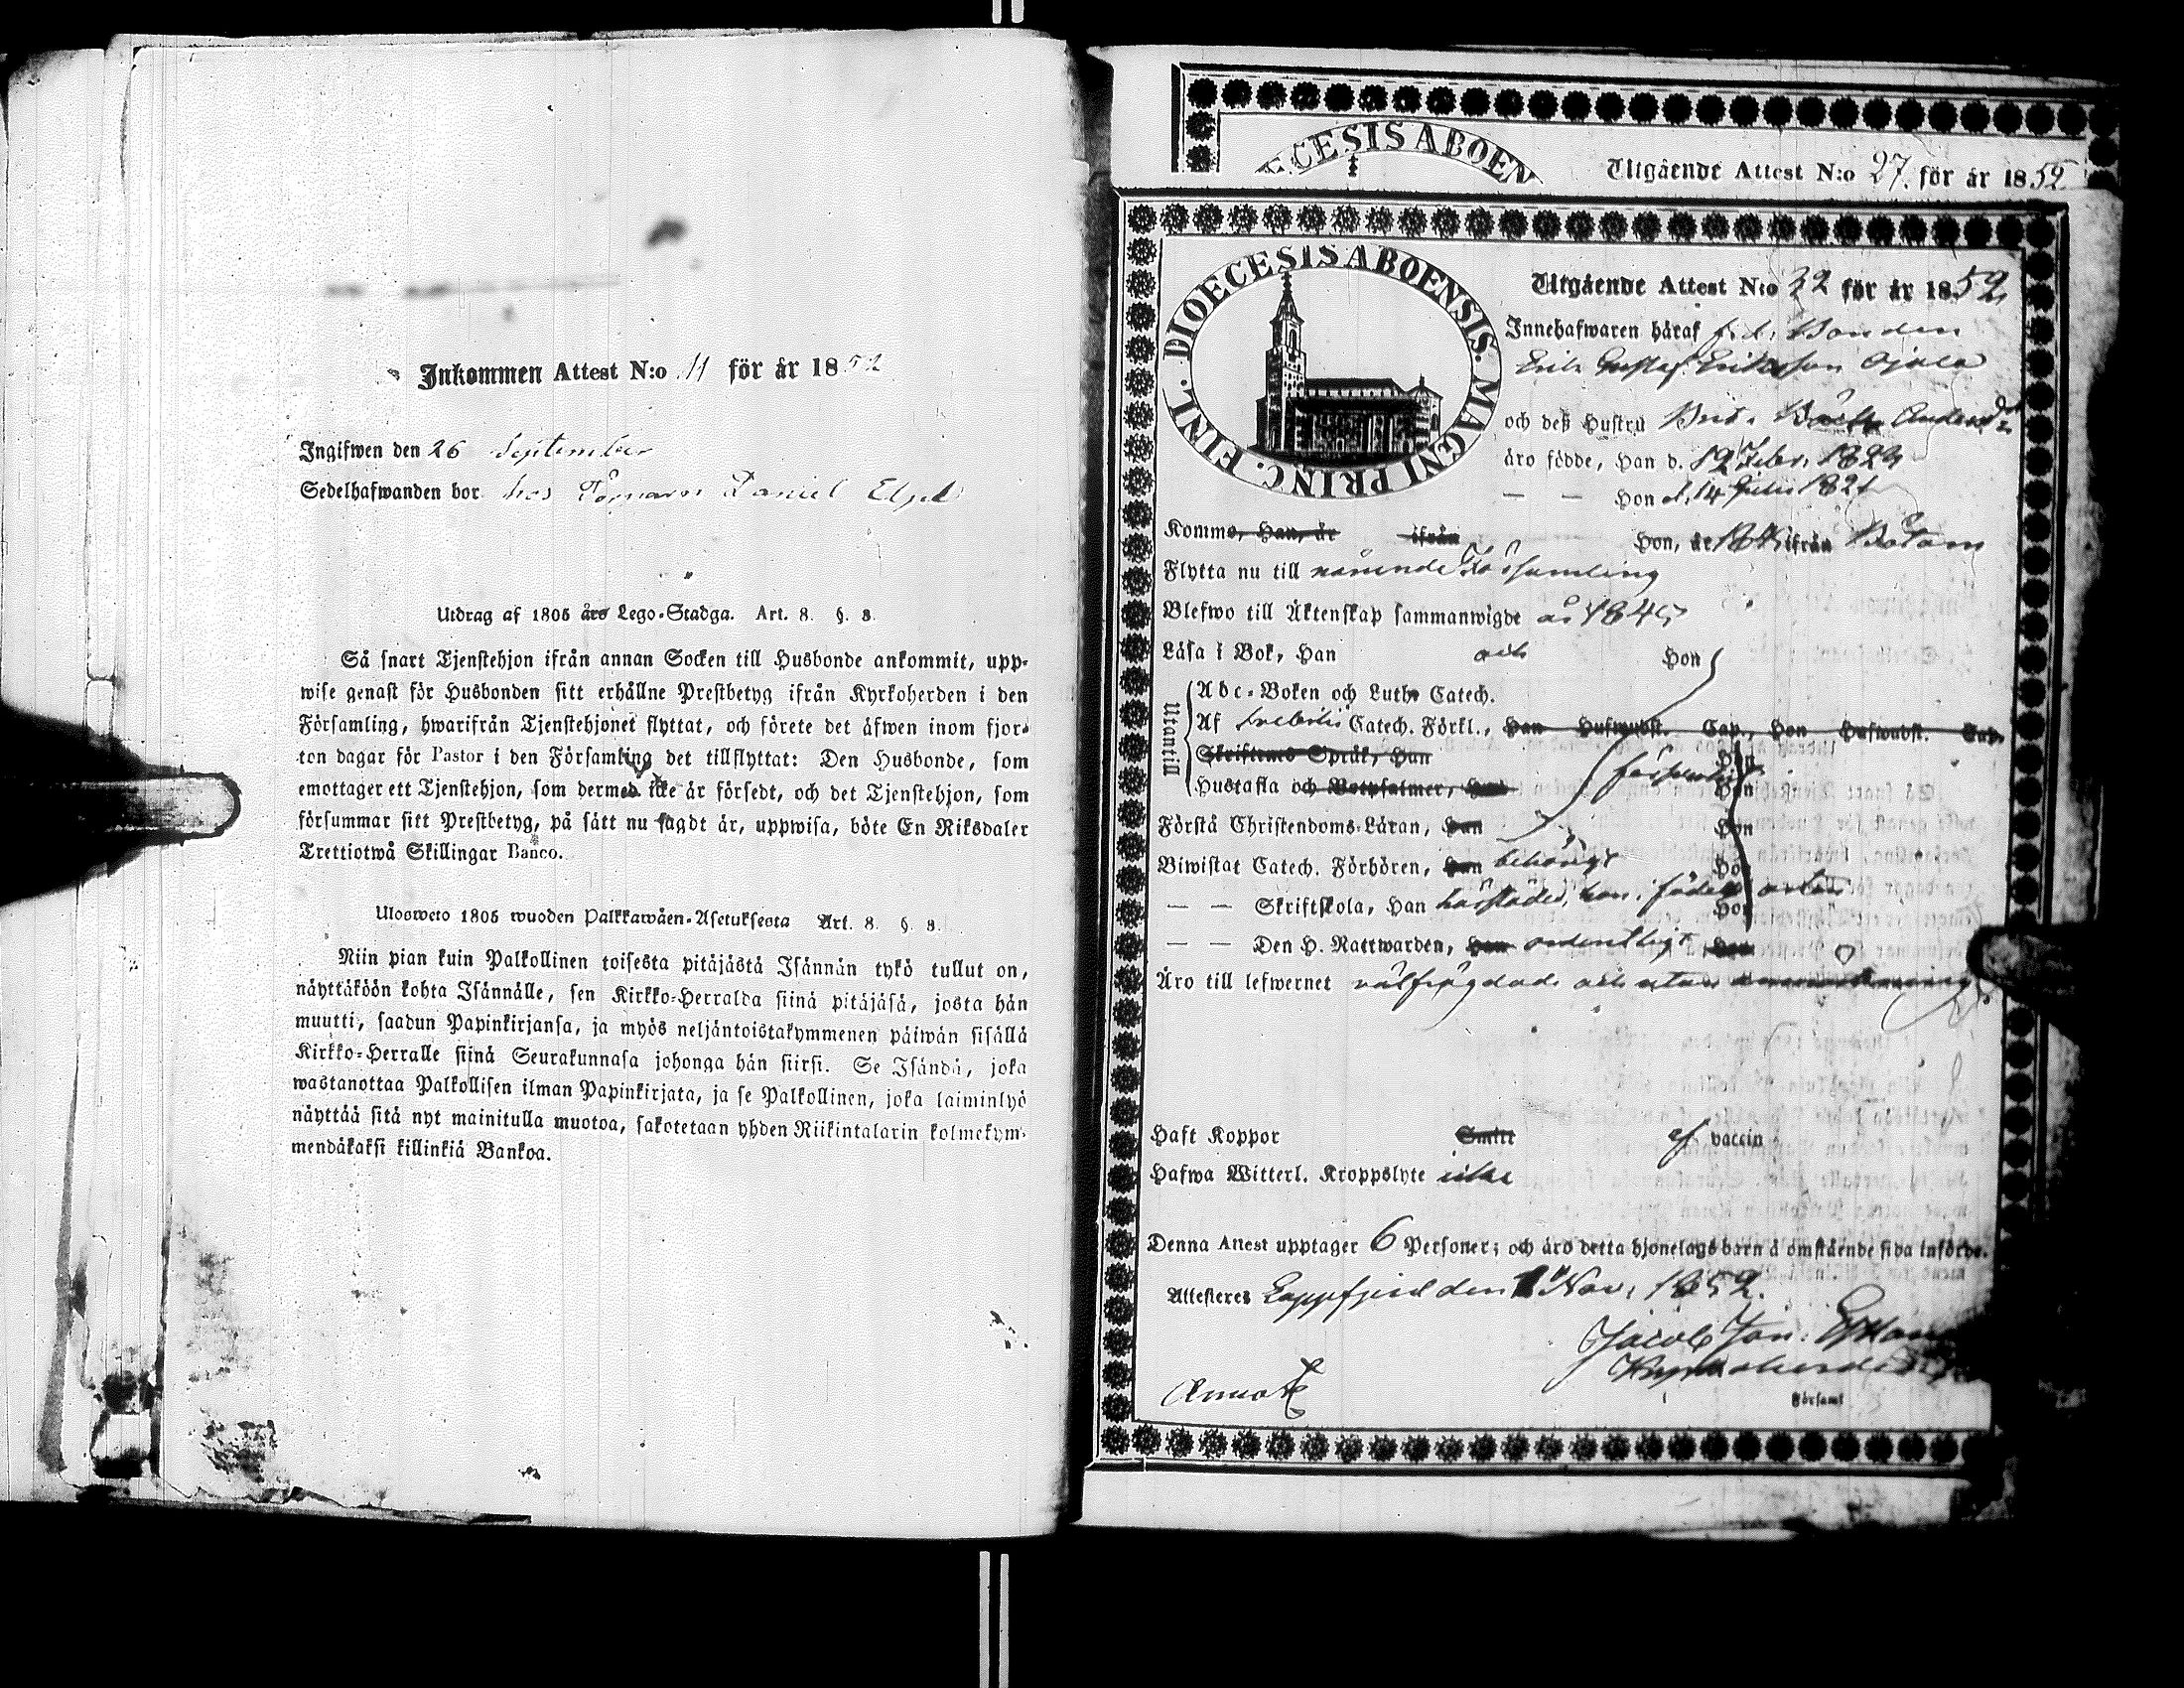 Inkommen Attest N:o 11 för år 1852
Ingifwen den 26 September
Sedelhafwanden bor hos Daniel
Utdrag af 1805 års Lego-Stadga. Art. 8. §. 3.
Så snart Tjenstehjon ifrån annan Socken till Husbonde ankommit, upp-
wise genast för Husbonden sitt erhållne Prestbetyg ifrån Kyrkoherden i den
Församling, hwarifrån Tjenstehjonet flyttat, och förete det äfwen inom fjor-
ton dagar för Pastor i den Församling det tillflyttat: Den Husbonde, som
emottager ett Tjenstehjon, som dermed icke är försedt, och det Tjenstehjon, som
försummar sitt Prestbetyg, på sätt nu sagdt är, uppwisa, böte En Riksdaler
Trettiotwå Skillingar Banco.
Ulosweto 1805 wuoden Palkkawäen-Asetuksesta Art. 8. §. 3.
Niin pian kuin Palkollinen toisesta pitäjästä Isännän tykö tullut on,
näyttäköön kohta Isännälle, sen Kirkko-Herralda siinä pitäjäsä, josta hän
muutti, saadun Papinkirjansa, ja myös neljäntoistakymmenen päiwän sisällä
Kirkko-Herralle siinä Seurakunnasa johonga hän siirsi. Se Isändä, joka
wastanottaa Palkollisen ilman Papinkirjata, ja se Palkollinen, joka laiminlyö
näyttää sitä nyt mainitulla muotoa, sakotetaan yhden Riikintalarin kolmekym-
mendäkaksi killinkiä Bankoa.
ECESIS ABOEN
Utgående Attest N:o 27. för år 1852
DIOECESIS ABOENSIS. MAGNI PRINC. FINL.
Utgående Attest N:o 32 för år 1852,
Innehafwaren häraf f.d. Bonden
Erik Gustaf Eriksson Ojala
och deß Hustru Brita Anders
äro födde, Han d. 12 Febr. 1829
— — Hon d. 14 Julii 1821
Komme, Han, år ifrån Hon, år ifrån Bötom
Flytta nu till Församling
Blefwo till Äktenskap sammanwigde år 1845
Läsa i Bok, Han och Hon
Utantill
Abc-Boken och Luth. Catech.
Af Svebilii Catech. Förkl., Han Hufwudst. Cap., Hon Hufwudst. Cap.
Skriftenes Språk, Han Hon
Hustafla och Botpsalmer, Han försvarligt Hon
Förstå Christendoms-Läran, Han Hon
Biwistat Catech. Förhören, Han behörigt Hon
— — Skriftskola, Han härstädes, hon i födelseorten Hon
— — Den H. Nattwarden, Han ordentligt Hon
Äro till lefwernet välfrägdade och utan
Haft Koppor Smitt af vaccin
Hafwa Witterl. Kroppslyte icke
Denna Attest upptager 6 Personer; och äro detta hjonelags barn å omstående sida införde.
Attesteras Lappfjerd den 1 Nov. 1852.
Jacob Joh.
Kyrkoherde
Församl